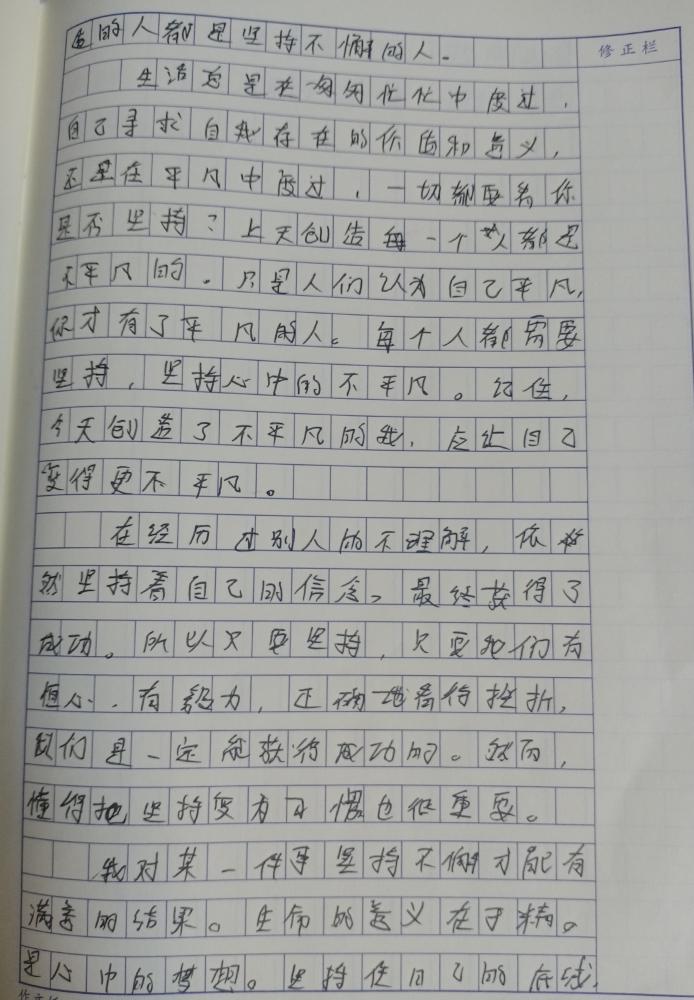 的人都是坚持不懈的人。
修正栏
生活总是在匆匆忙忙中度过，
自己寻求自我存在的价值和意义，
还是在平凡中度过，一切都要看你
是否坚持？上天创造每一个人都是
不平凡的。只是人们认为自己平凡，
你才有了平凡的人。每个人都需要
坚持，坚持心中的不平凡。记住，
今天创造了不平凡的我，应让自己
变得更不平凡。
在经历过别人的不理解，依
然坚持着自己的信念。最终获得了
成功。所以只要坚持，只要我们有
恒心、有毅力，正确地看待挫折，
我们是一定能获得成功的。然而，
懂得把坚持变为习惯也很重要。
我对某一件事坚持不懈才配有
满意的结果。生命的意义在于精。
是心中的梦想。坚持住自己的底线，